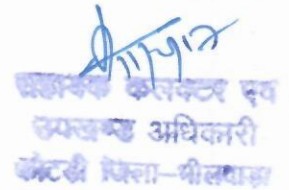 सहायक कलक्टर एवं
उपखण्ड अधिकारी
कोटड़ी जिला-भीलवाड़ा